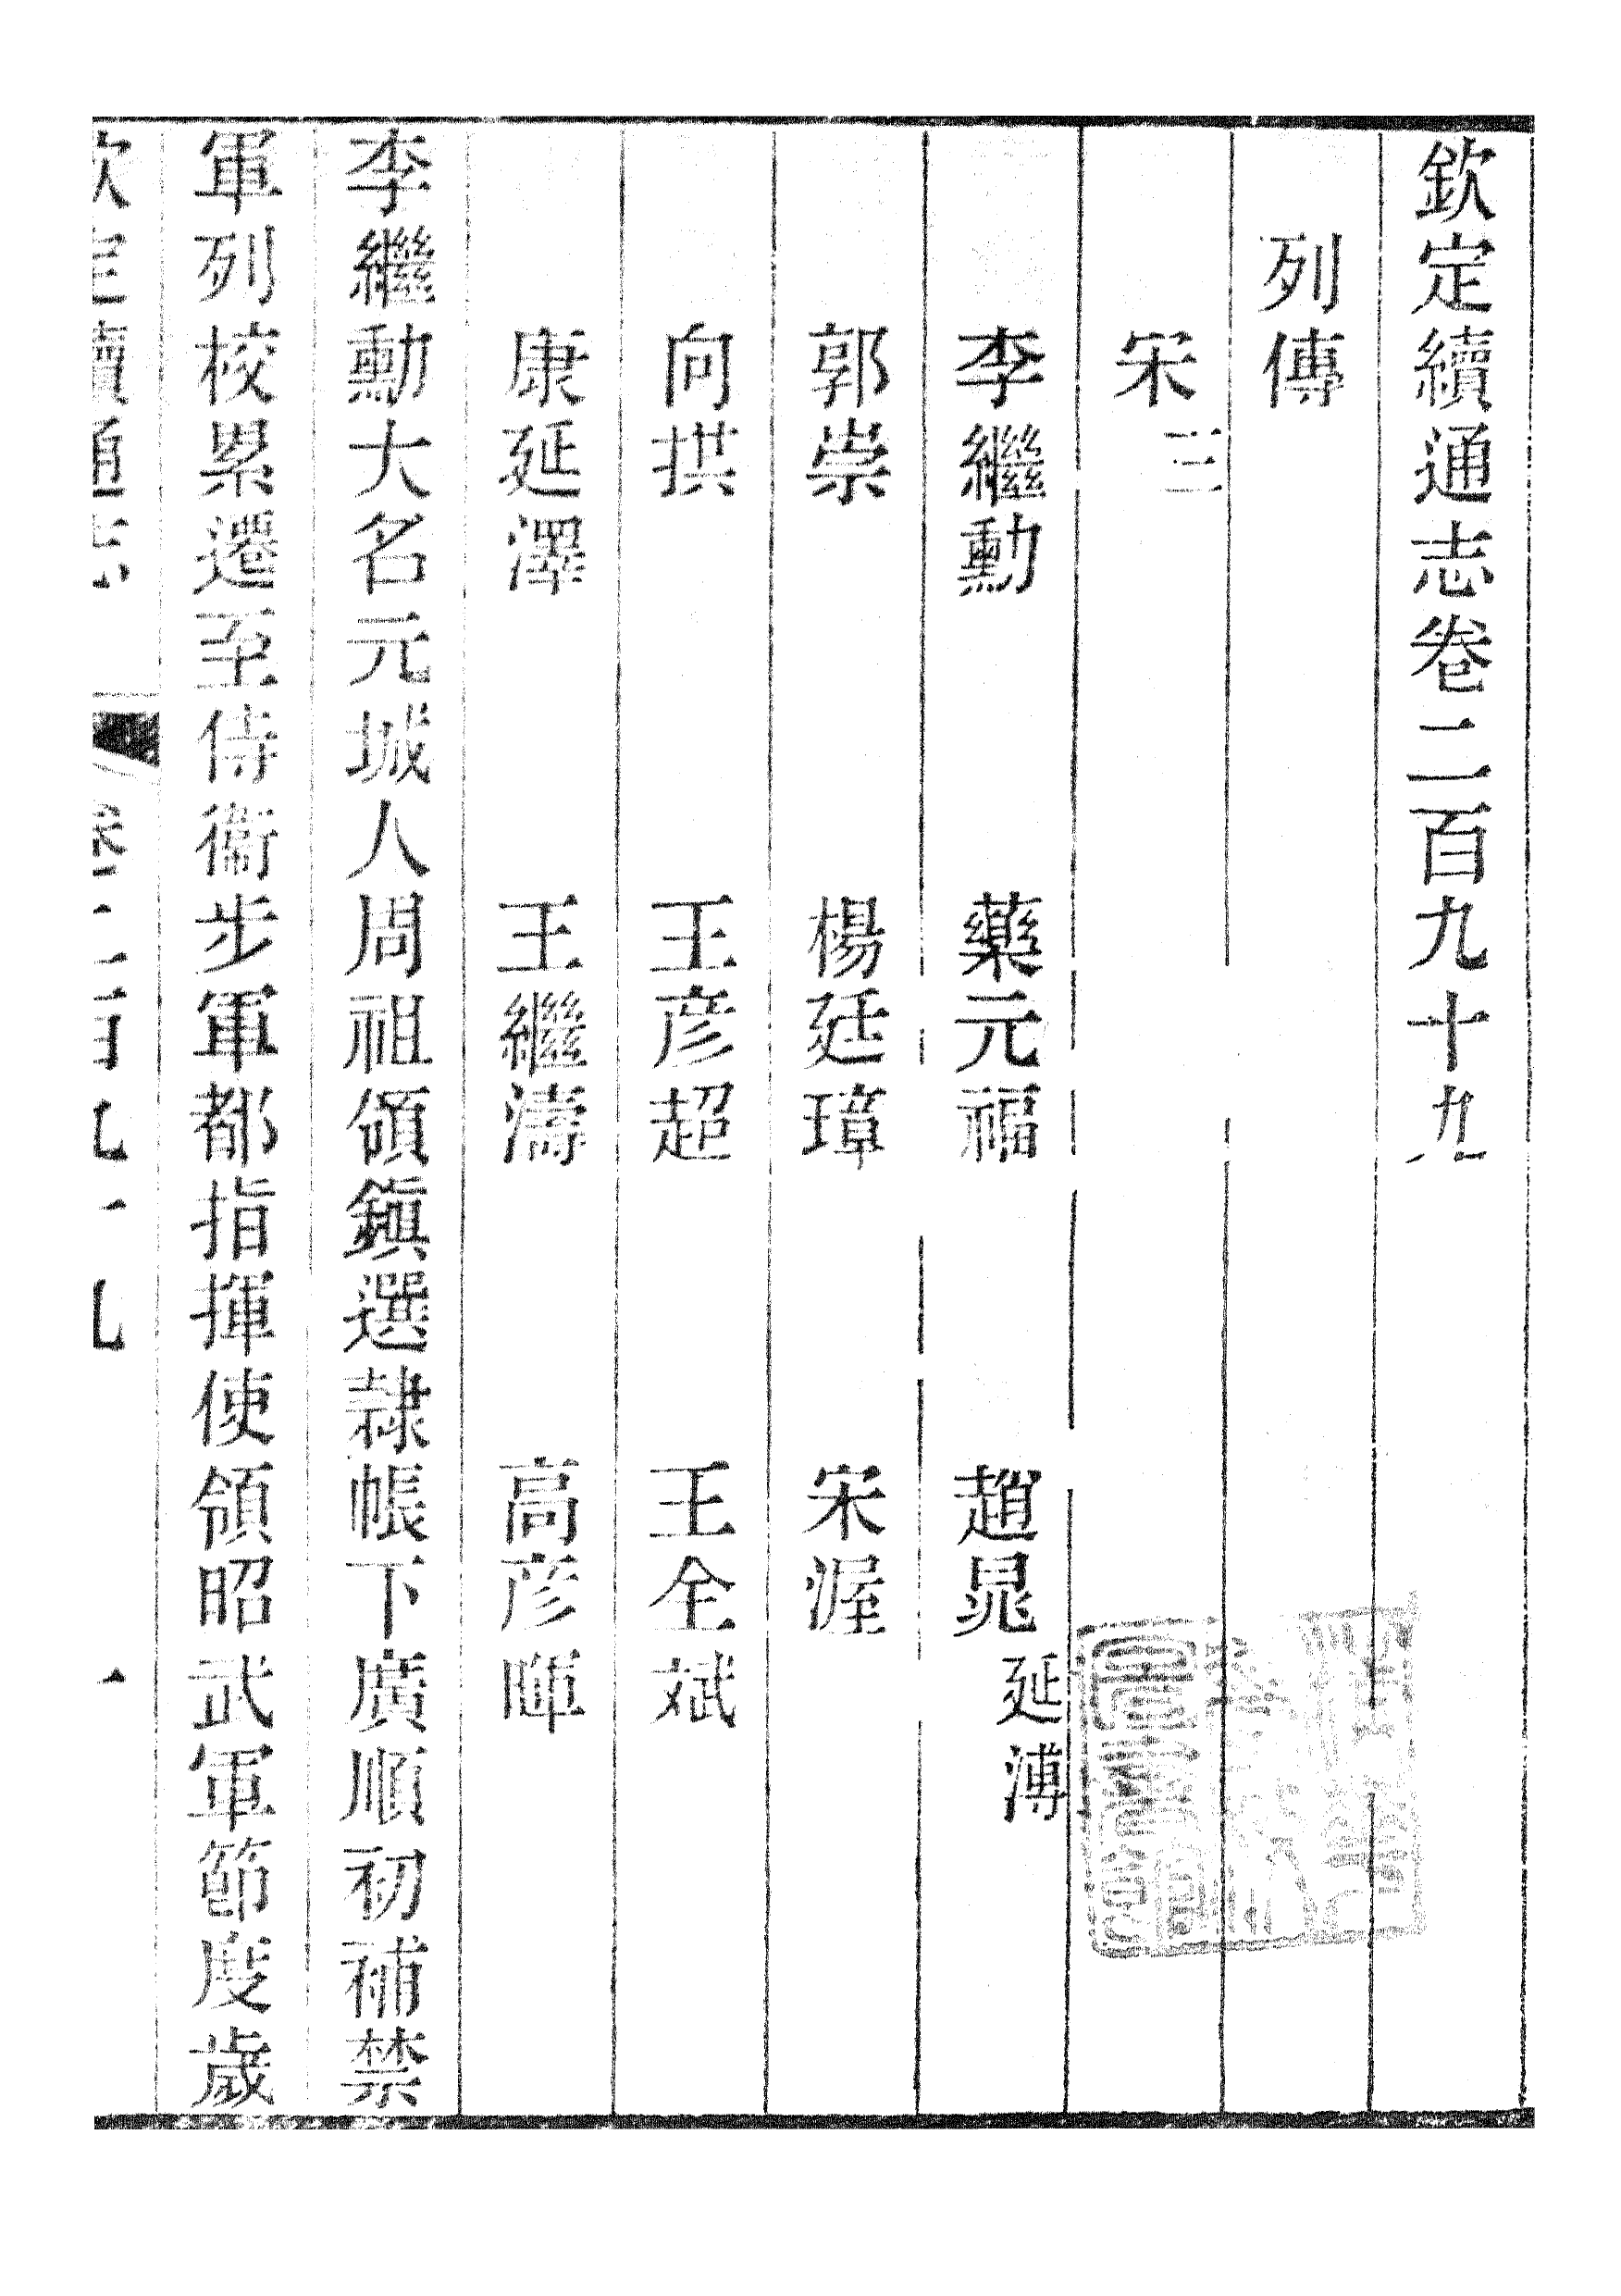 欽定續通志卷二百九十九
列傳
宋三
李繼勳 藥元福 趙晁延溥
郭崇 楊廷璋 宋渥
向拱 王彦超 王全斌
康延澤 王繼濤 高彦暉
李繼勳大名元城人周祖領鎭選隷帳下廣順初補禁
軍列校累遷至侍衞步軍都指揮使領昭武軍節度歲
欽定續通志 卷二百九十九 一